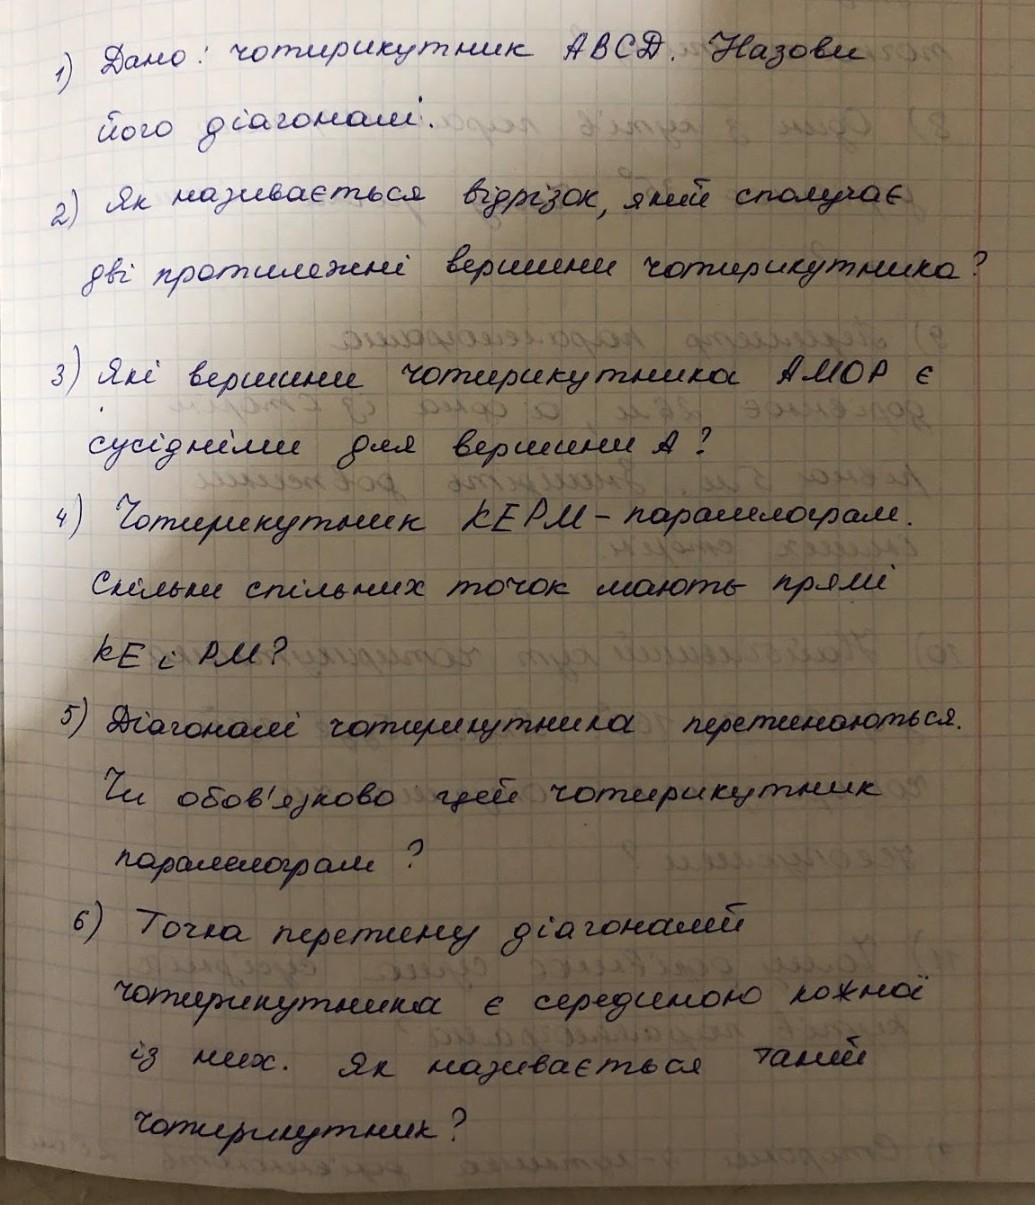 1) Дано: чотирикутник ABCD. Назови
його діагоналі.
2) Як називається відрізок, який сполучає
дві протилежні вершини чотирикутника?
3) Які вершини чотирикутника АМОР є
сусідніми для вершини А?
4) Чотирикутник КЕРМ - паралелограм.
Скільки спільних точок мають прямі
КЕ і РМ?
5) Діагоналі чотирикутника перетинаються.
Чи обов'язково цей чотирикутник
паралелограм?
6) Точка перетину діагоналей
чотирикутника є серединою кожної
із них. Як називається такий
чотирикутник?